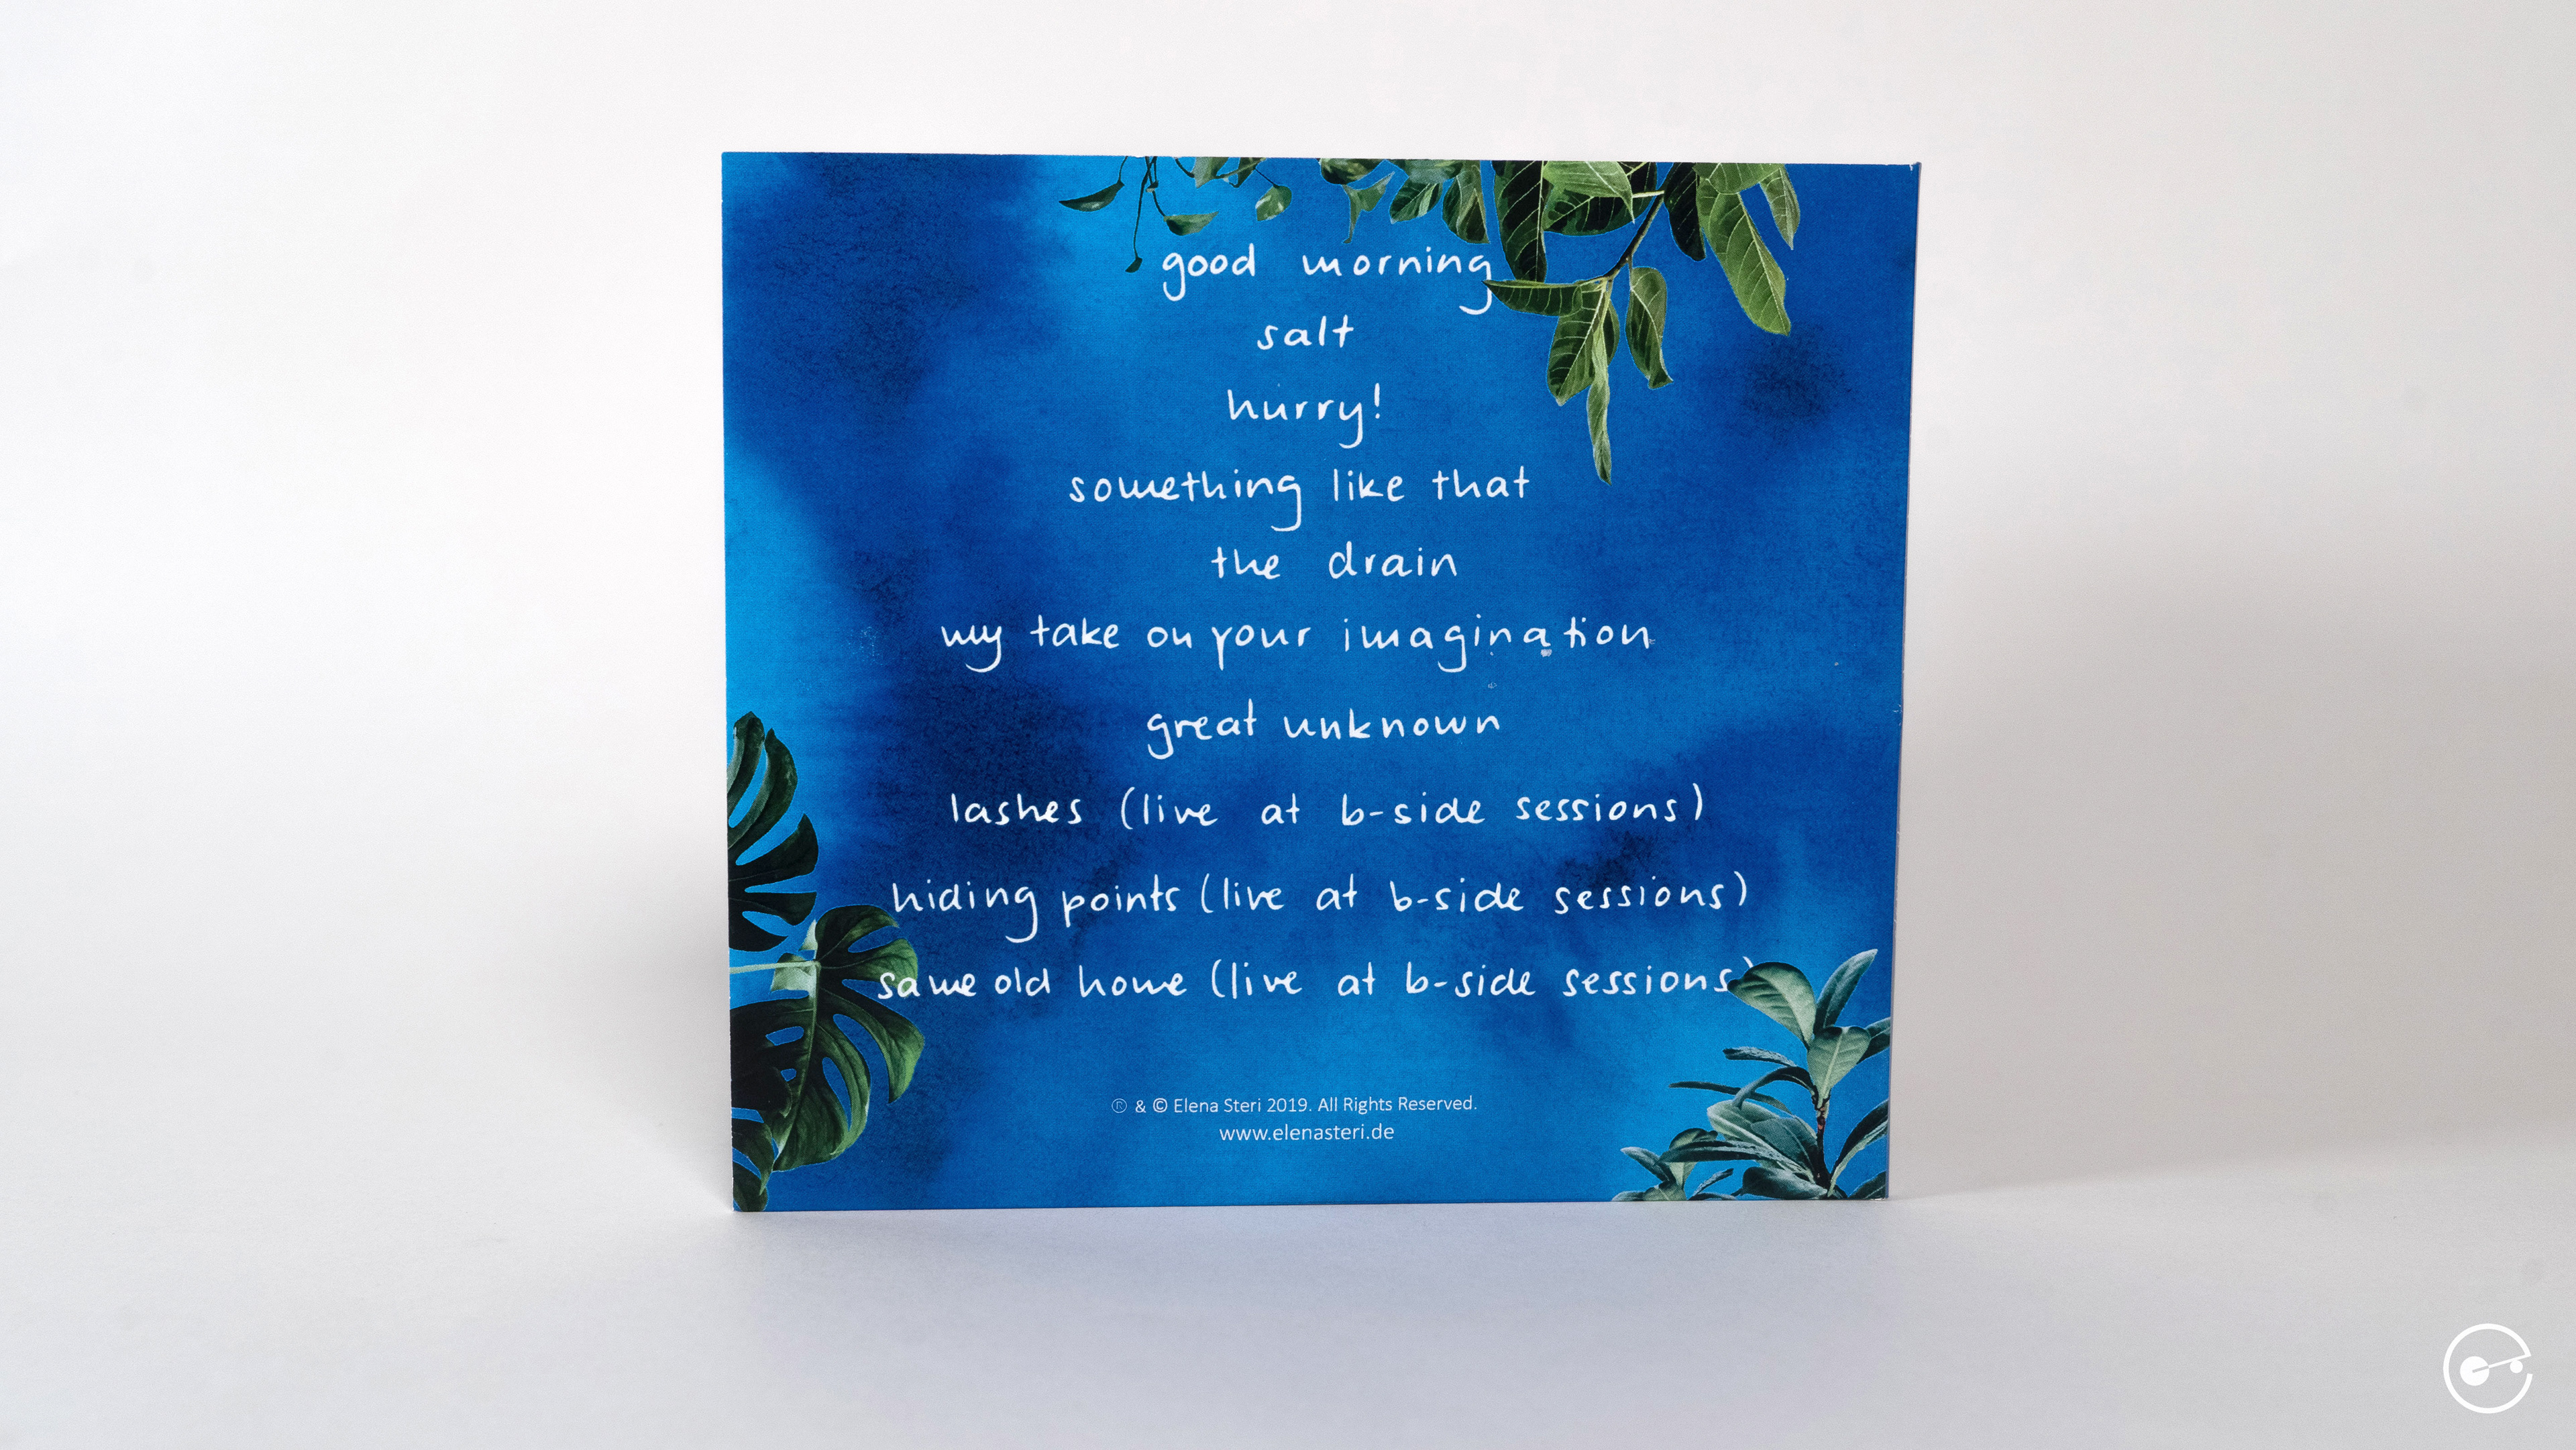 good morning
salt
hurry!
something like that
the drain
my take on your imagination
great unknown
lashes (live at b-side sessions)
hiding points (live at b-side sessions)
same old home (live at b-side sessions)
® & © Elena Steri 2019. All Rights Reserved.
www.elenasteri.de